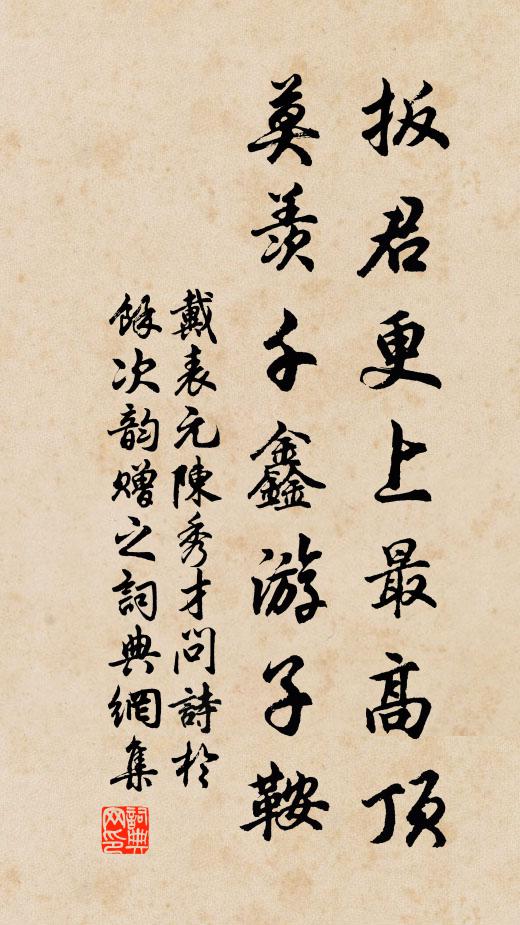 扳君更上最高顶
莫羡千鑫游子鞍
戴表元陳秀才问詩於
餘次韵赠之詞典網集
詞典网印